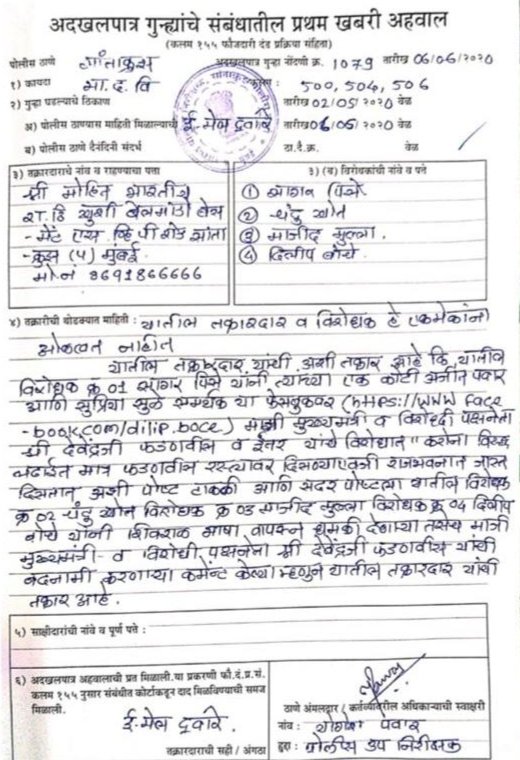 अदखलपात्र गुन्ह्यांचे संबंधातील प्रथम खबरी अहवाल
(कलम १५५ फौजदारी दंड प्रक्रिया संहिता)
पोलीस ठाणे सांताक्रुझ अदखलपात्र गुन्हा नोंदणी क्र. 1079 तारीख 06/06/2020
१) कायदा भा.द.वि कलम : 500, 504, 506
२) गुन्हा घडल्याचे ठिकाण तारीख 02/05/2020 वेळ
अ) पोलीस ठाण्यास माहिती मिळाल्याची ई-मेल द्वारे तारीख 06/06/2020 वेळ
ब) पोलीस ठाणे दैनंदिनी संदर्भ ठा.दै.क्र. वेळ
३) तक्रारदाराचे नांव व राहण्याचा पत्ता
श्री मोहित भारतीय
रा.ठि खुशी बेलमोंडो
- मेंट एस. व्हि पी रोड सांता
- क्रुझ (प) मुंबई
मो.नं 8691866666
३) (ब) विरोधकांची नावे व पत्ते
① सागर पिसे
② चंदु खोत
③ माजीद मुल्ला.
④ दिलीप बोचे
४) तक्रारीची थोडक्यात माहिती : यातील तक्रारदार व विरोधक हे एकमेकांना
ओळखत नाहीत
यातील तक्रारदार यांची अशी तक्रार आहे कि, यातील
विरोधक क्र 01 सागर पिसे यांनी त्याच्या एक कोटी अजीत पवार
आणि सुप्रिया सुळे समर्थक या फेसबुकवर (https://www face
-book.com/dilip.boce) माजी मुख्यमंत्री व विरोधी पक्षनेता
श्री देवेंद्रजी फडणवीस व ईतर यांचे विरोधात " करोना विरुद्ध
लढाईत मात्र फडणवीस रस्त्यावर दिसण्याऐवजी राजभवनात जास्त
दिसतात अशी पोष्ट टाकली आणि सदर पोष्टला यातील विरोधक
क्र 02 चंदु खोत विरोधक क्र 03 माजीद मुल्ला विरोधक क्र 04 दिलीप
बोचे यांनी शिवराळ भाषा वापरुन धमकी देणाऱ्या तसेच माजी
मुख्यमंत्री व विरोधी पक्षनेता श्री देवेंद्रजी फडणवीस यांची
बदनामी करणाऱ्या कमेंन्ट केल्या म्हणुन यातील तक्रारदार यांची
तक्रार आहे.
५) साक्षीदारांची नांवे व पूर्ण पत्ते :
६) अदखलपात्र अहवालाची प्रत मिळाली. या प्रकरणी फौ.दं.प्र.सं.
कलम १५५ नुसार संबंधीत कोर्टाकडून दाद मिळविण्याची समज
मिळाली.
ई-मेल द्वारे.
तक्रारदाराची सही / अंगठा
ठाणे अंमलदार / कर्तव्यावरील अधिकाऱ्याची स्वाक्षरी
नांव : योगेश पवार
हुद्दा : पोलीस उप निरीक्षक